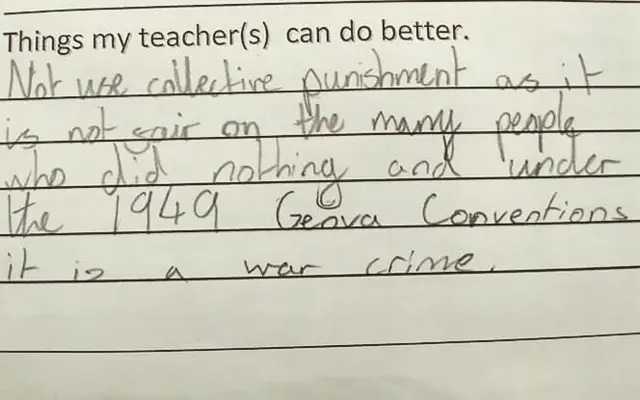 Things my teacher(s) can do better.
Not use collective punishment as it
is not fair on the many people
who did nothing and under
the 1949 Genva Conventions
it is a war crime.